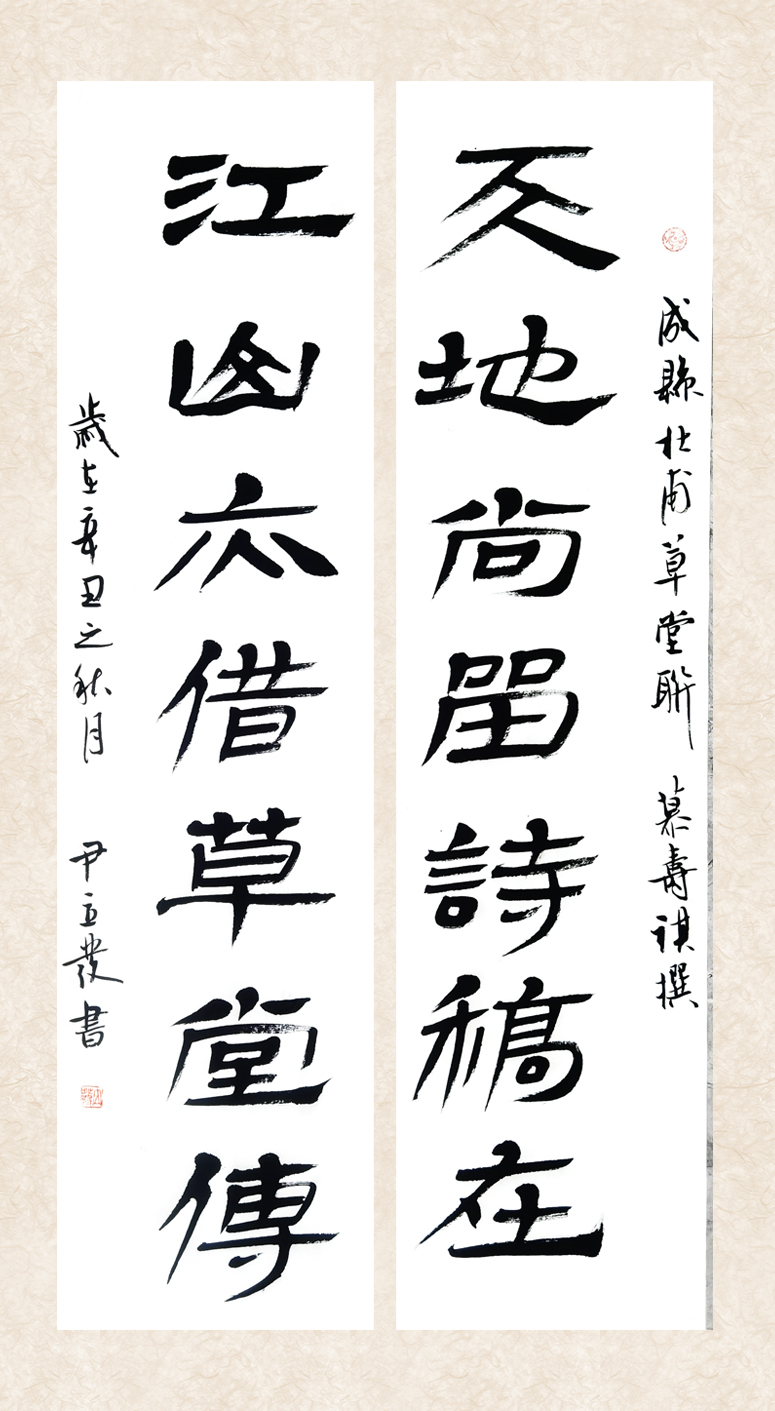 成縣杜甫草堂聯 慕壽祺撰
天地尚留詩稿在
江山亦借草堂傳
歲在辛丑之秋月 尹立發書